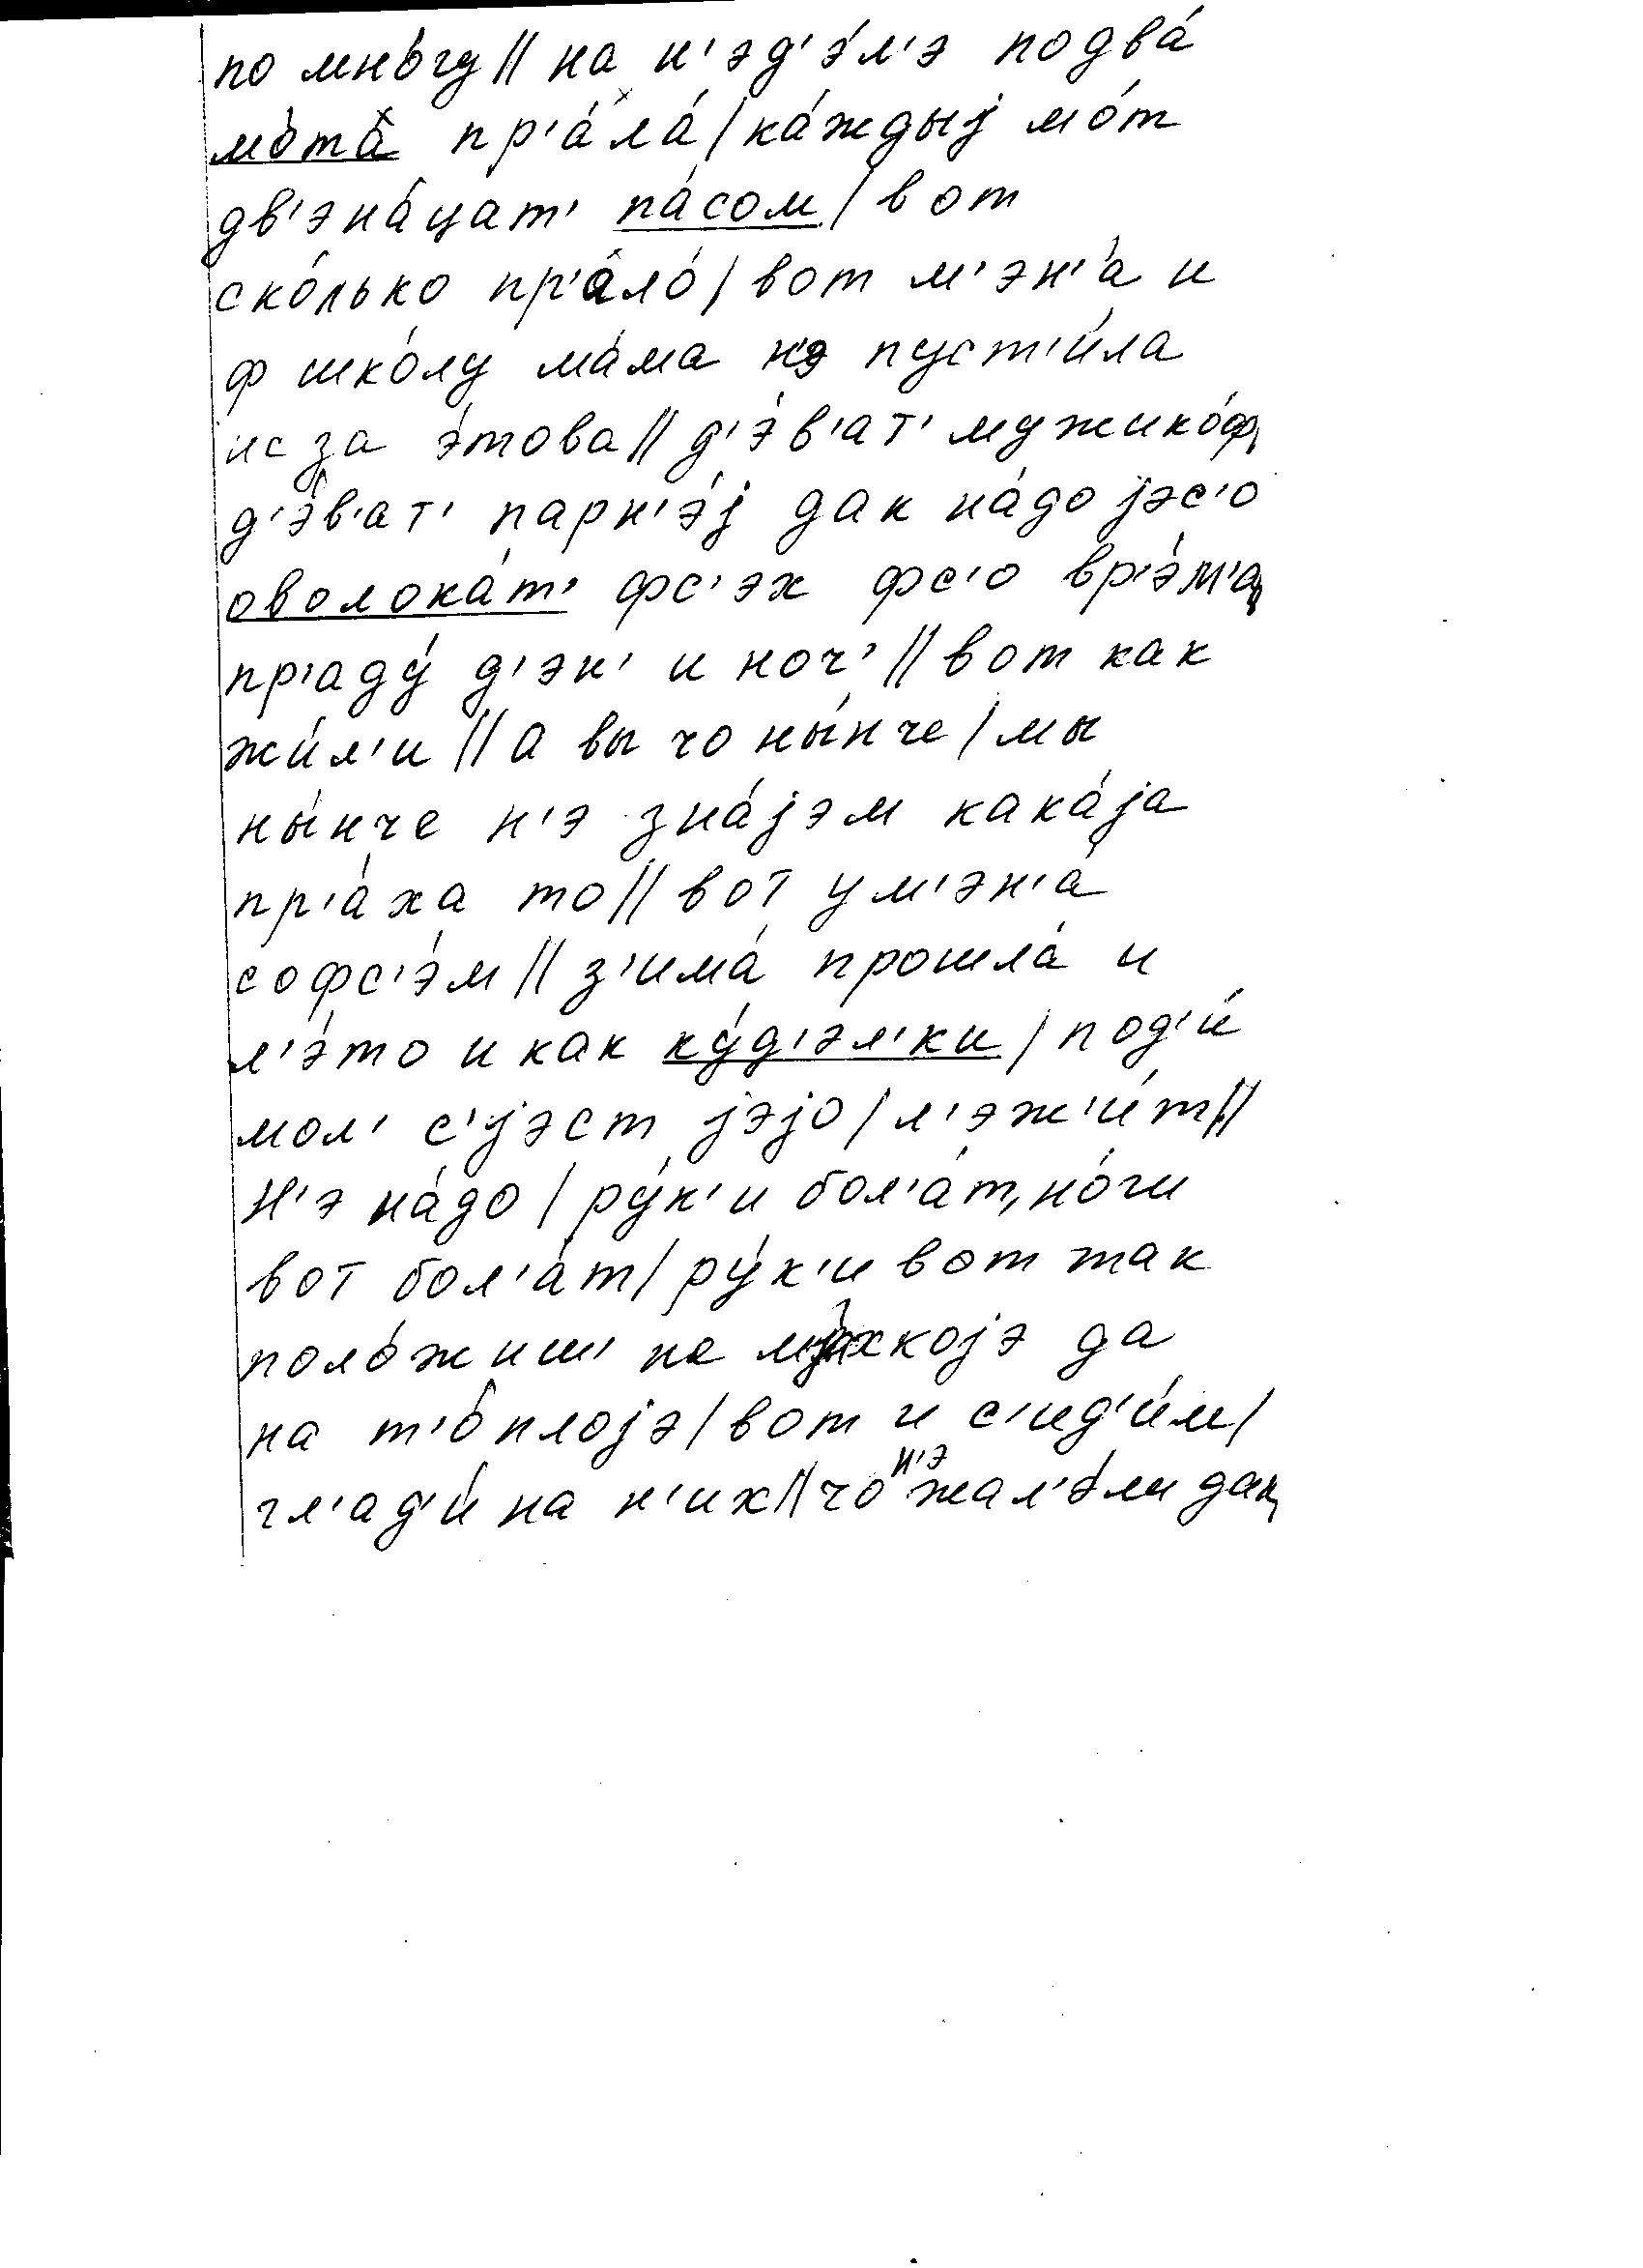 по мно́гу // на н'эд'э́л'э подва́
мо́та́ пр'а́ла́ / ка́ждыј мо́т
дв'эна́цат' па́сом / вот
ско́лько пр'а́ло́ / вот м'эн'а́ и
ф шко́лу ма́ма н'э пуст'и́ла
ис за э́това // д'э́в'ат' мужико́ф,
д'э́в'ат' парн'э́ј дак на́до јэс'о
оволока́т' фс'эх фс'о вр'э́м'а,
пр'аду́ д'эн' и ноч' // вот как
жи́л'и // а вы чо ны́нче / мы
ны́нче н'э зна́јэм кака́ја
пр'а́ха то // вот у м'эн'а́
софс'э́м // з'има́ прошла́ и
л'э́то и как ку́д'эл'ки / под'и́
мол' с'јэст јэјо / л'эж'и́т //
Н'э на́до / ру́к'и бол'а́т, но́ги
вот бол'а́т / ру́к'и вот так
поло́жиш' на м'а́хкојэ да
на т'о́плојэ / вот и с'ид'и́м /
гл'ад'и́ на н'их // чо н'э жал'э́ли дак,